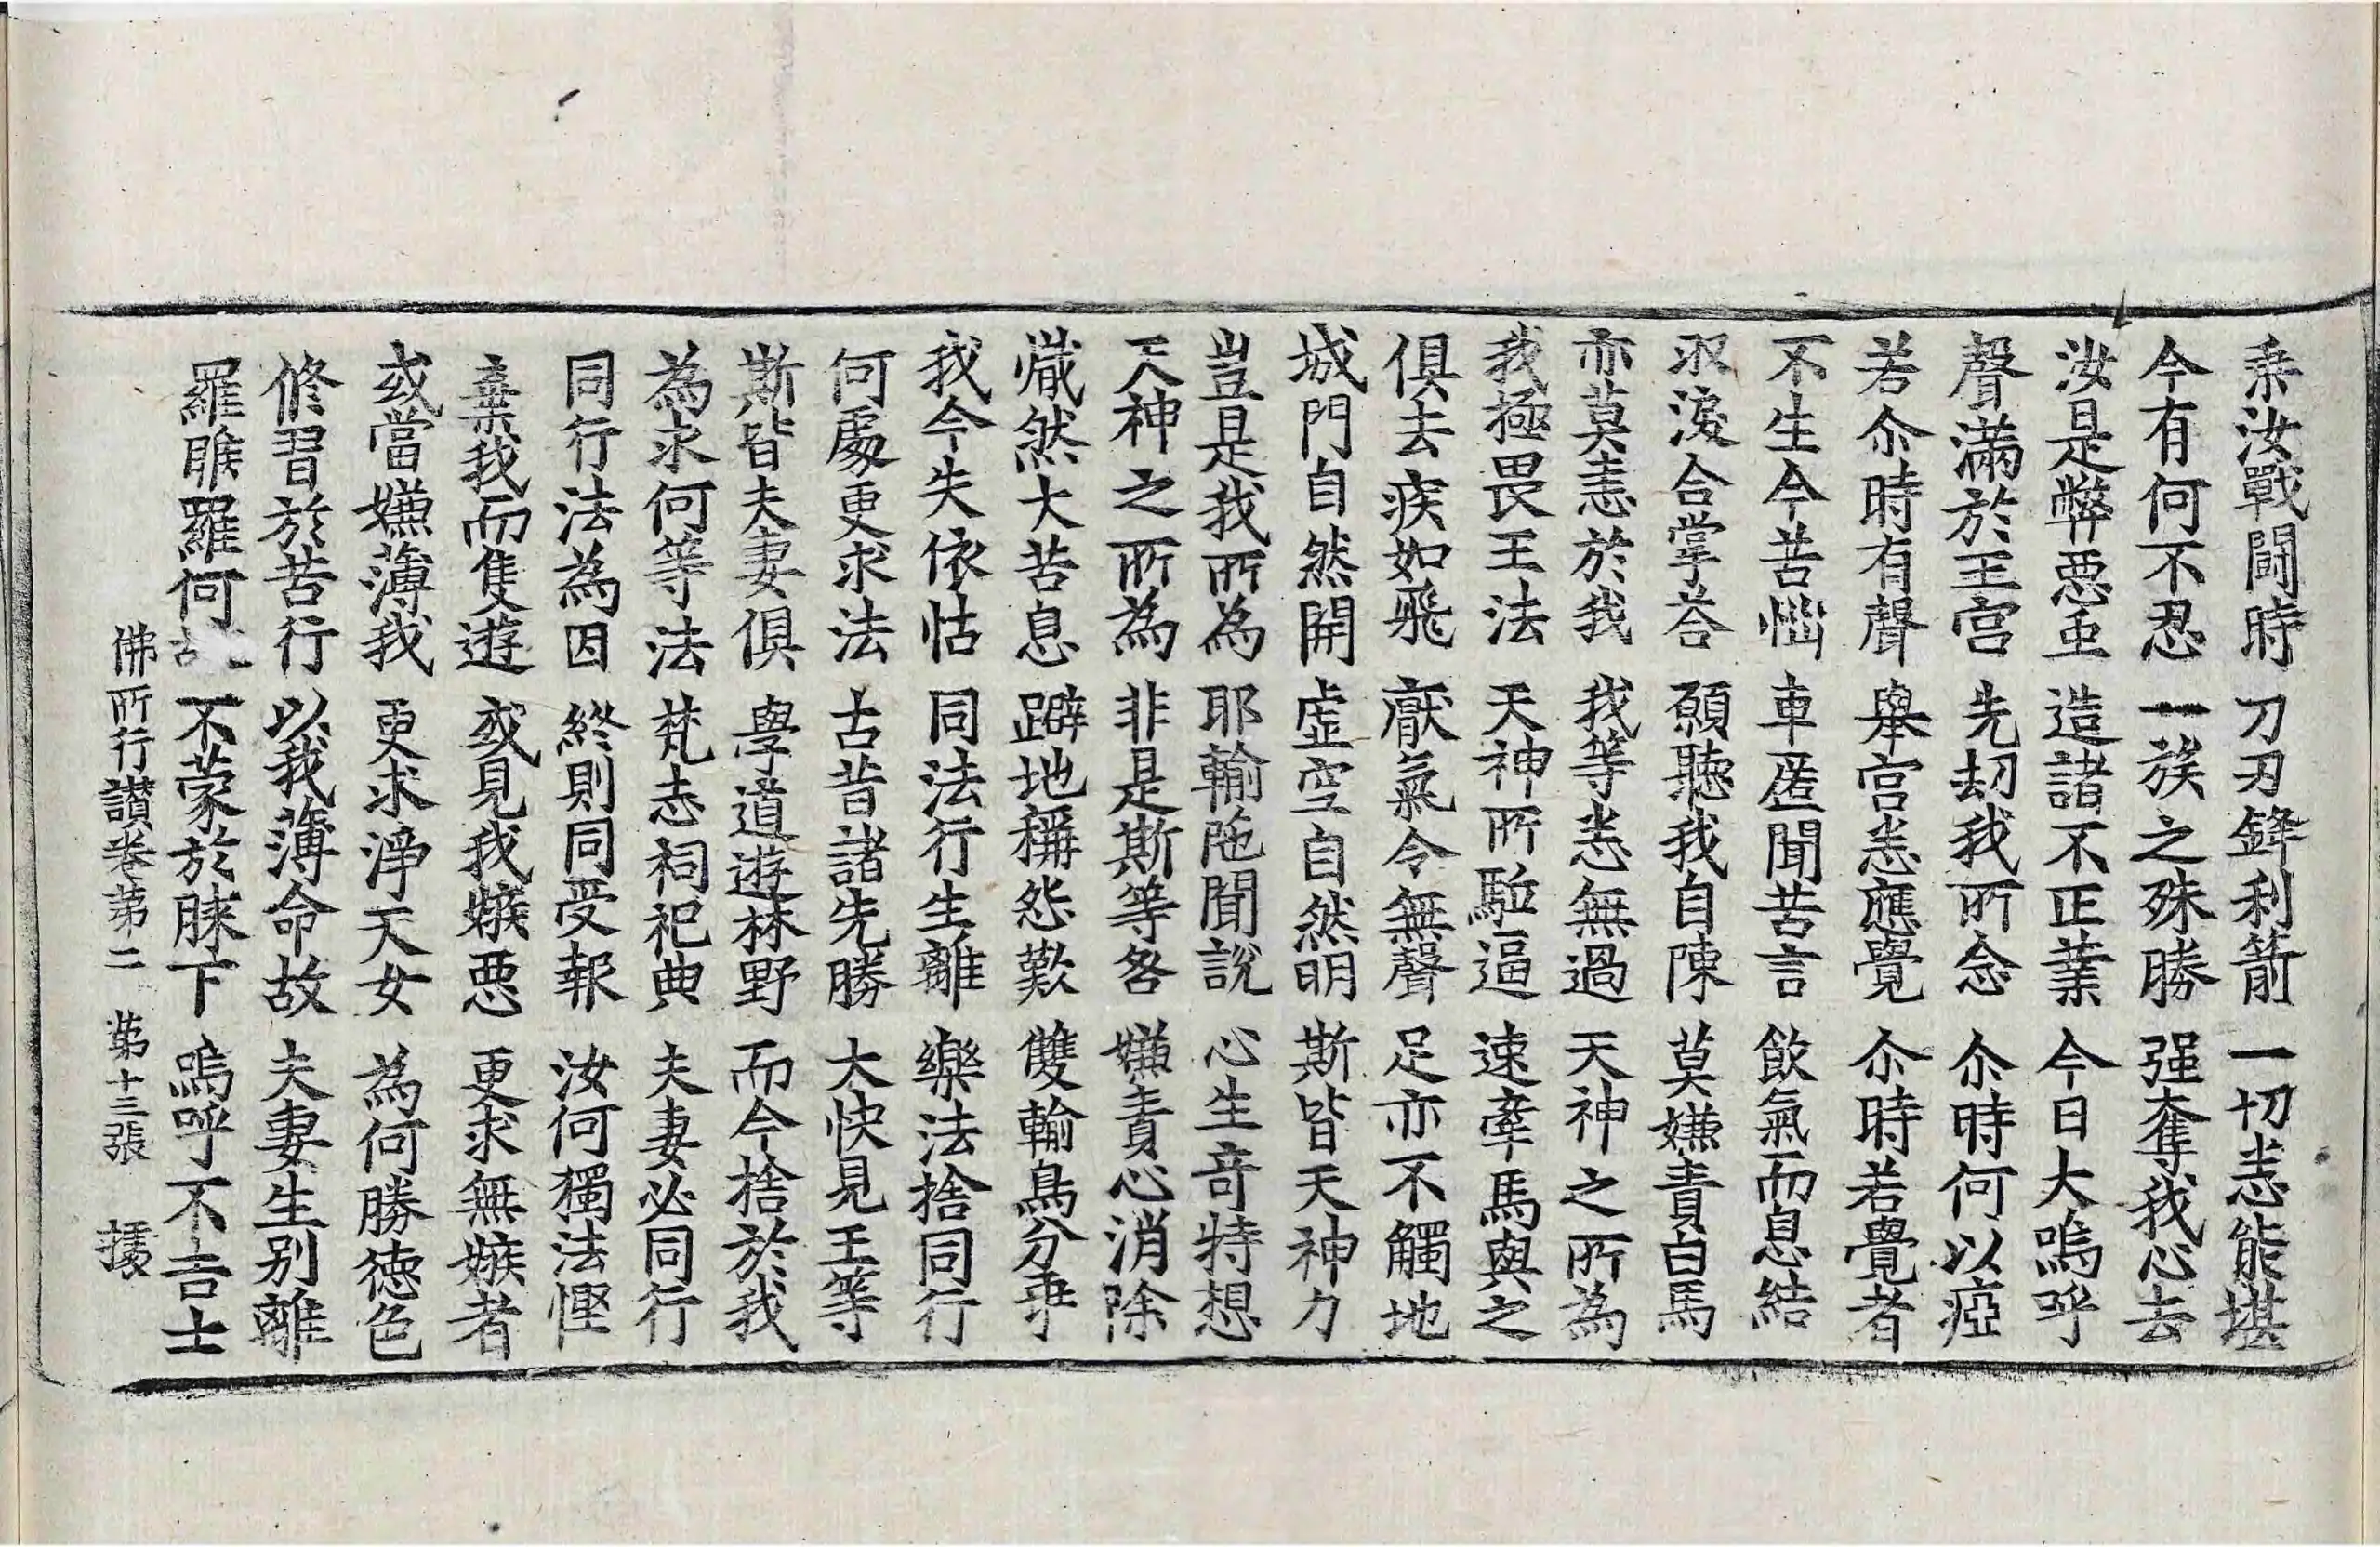 乗汝戰鬪時 刀刃鋒利箭 一切悉能堪
今有何不忍 一族之殊勝 强奪我心去
汝是弊惡虫 造諸不正業 今日大嗚呼
聲滿於王宫 先刧我所念 尒時何以瘂
若尒時有聲 舉宫悉應覺 尒時若覺者
不生今苦惱 車匿聞苦言 飲氣而息結
收淚合掌荅 願聽我自陳 莫嫌責白馬
亦莫恚於我 我等悉無過 天神之所為
我極畏王法 天神所駈逼 速牽馬與之
俱去疾如飛 猒氣令無聲 足亦不觸地
城門自然開 虚空自然明 斯皆天神力
豈是我所為 耶輸陁聞說 心生竒特想
天神之所為 非是斯等咎 嫌責心消除
熾然大苦息 躃地稱怨歎 雙輪鳥分乖
我今失依怙 同法行生離 樂法捨同行
何處更求法 古昔諸先勝 大快見王等
斯皆夫妻俱 學道遊林野 而今捨於我
為求何等法 梵志祠祀典 夫妻必同行
同行法為因 終則同受報 汝何獨法慳
棄我而隻遊 或見我嫉惡 更求無嫉者
或當嫌薄我 更求淨天女 為何勝徳色
修習於苦行 以我薄命故 夫妻生别離
羅睺羅何 不蒙於膝下 嗚呼不吉士
佛所行讃卷第二 第十三張